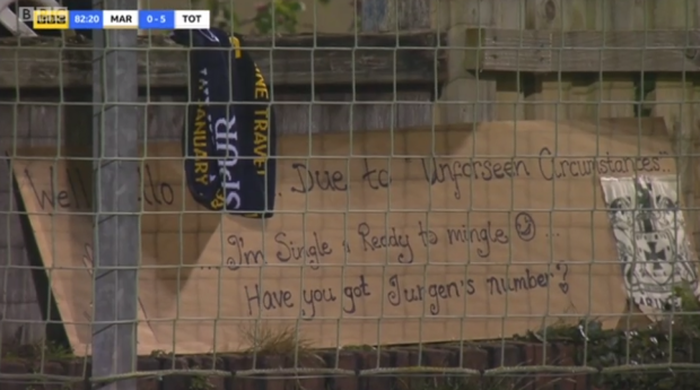 BBC
BBC 82:20 MAR 0 - 5 TOT
ANUARY SPUR NE TRAVE
Well llo . Due to "Unforseen Circumstances"..
...I'm Single & Ready to mingle ...
Have you got Jurgen's number?
ARINE